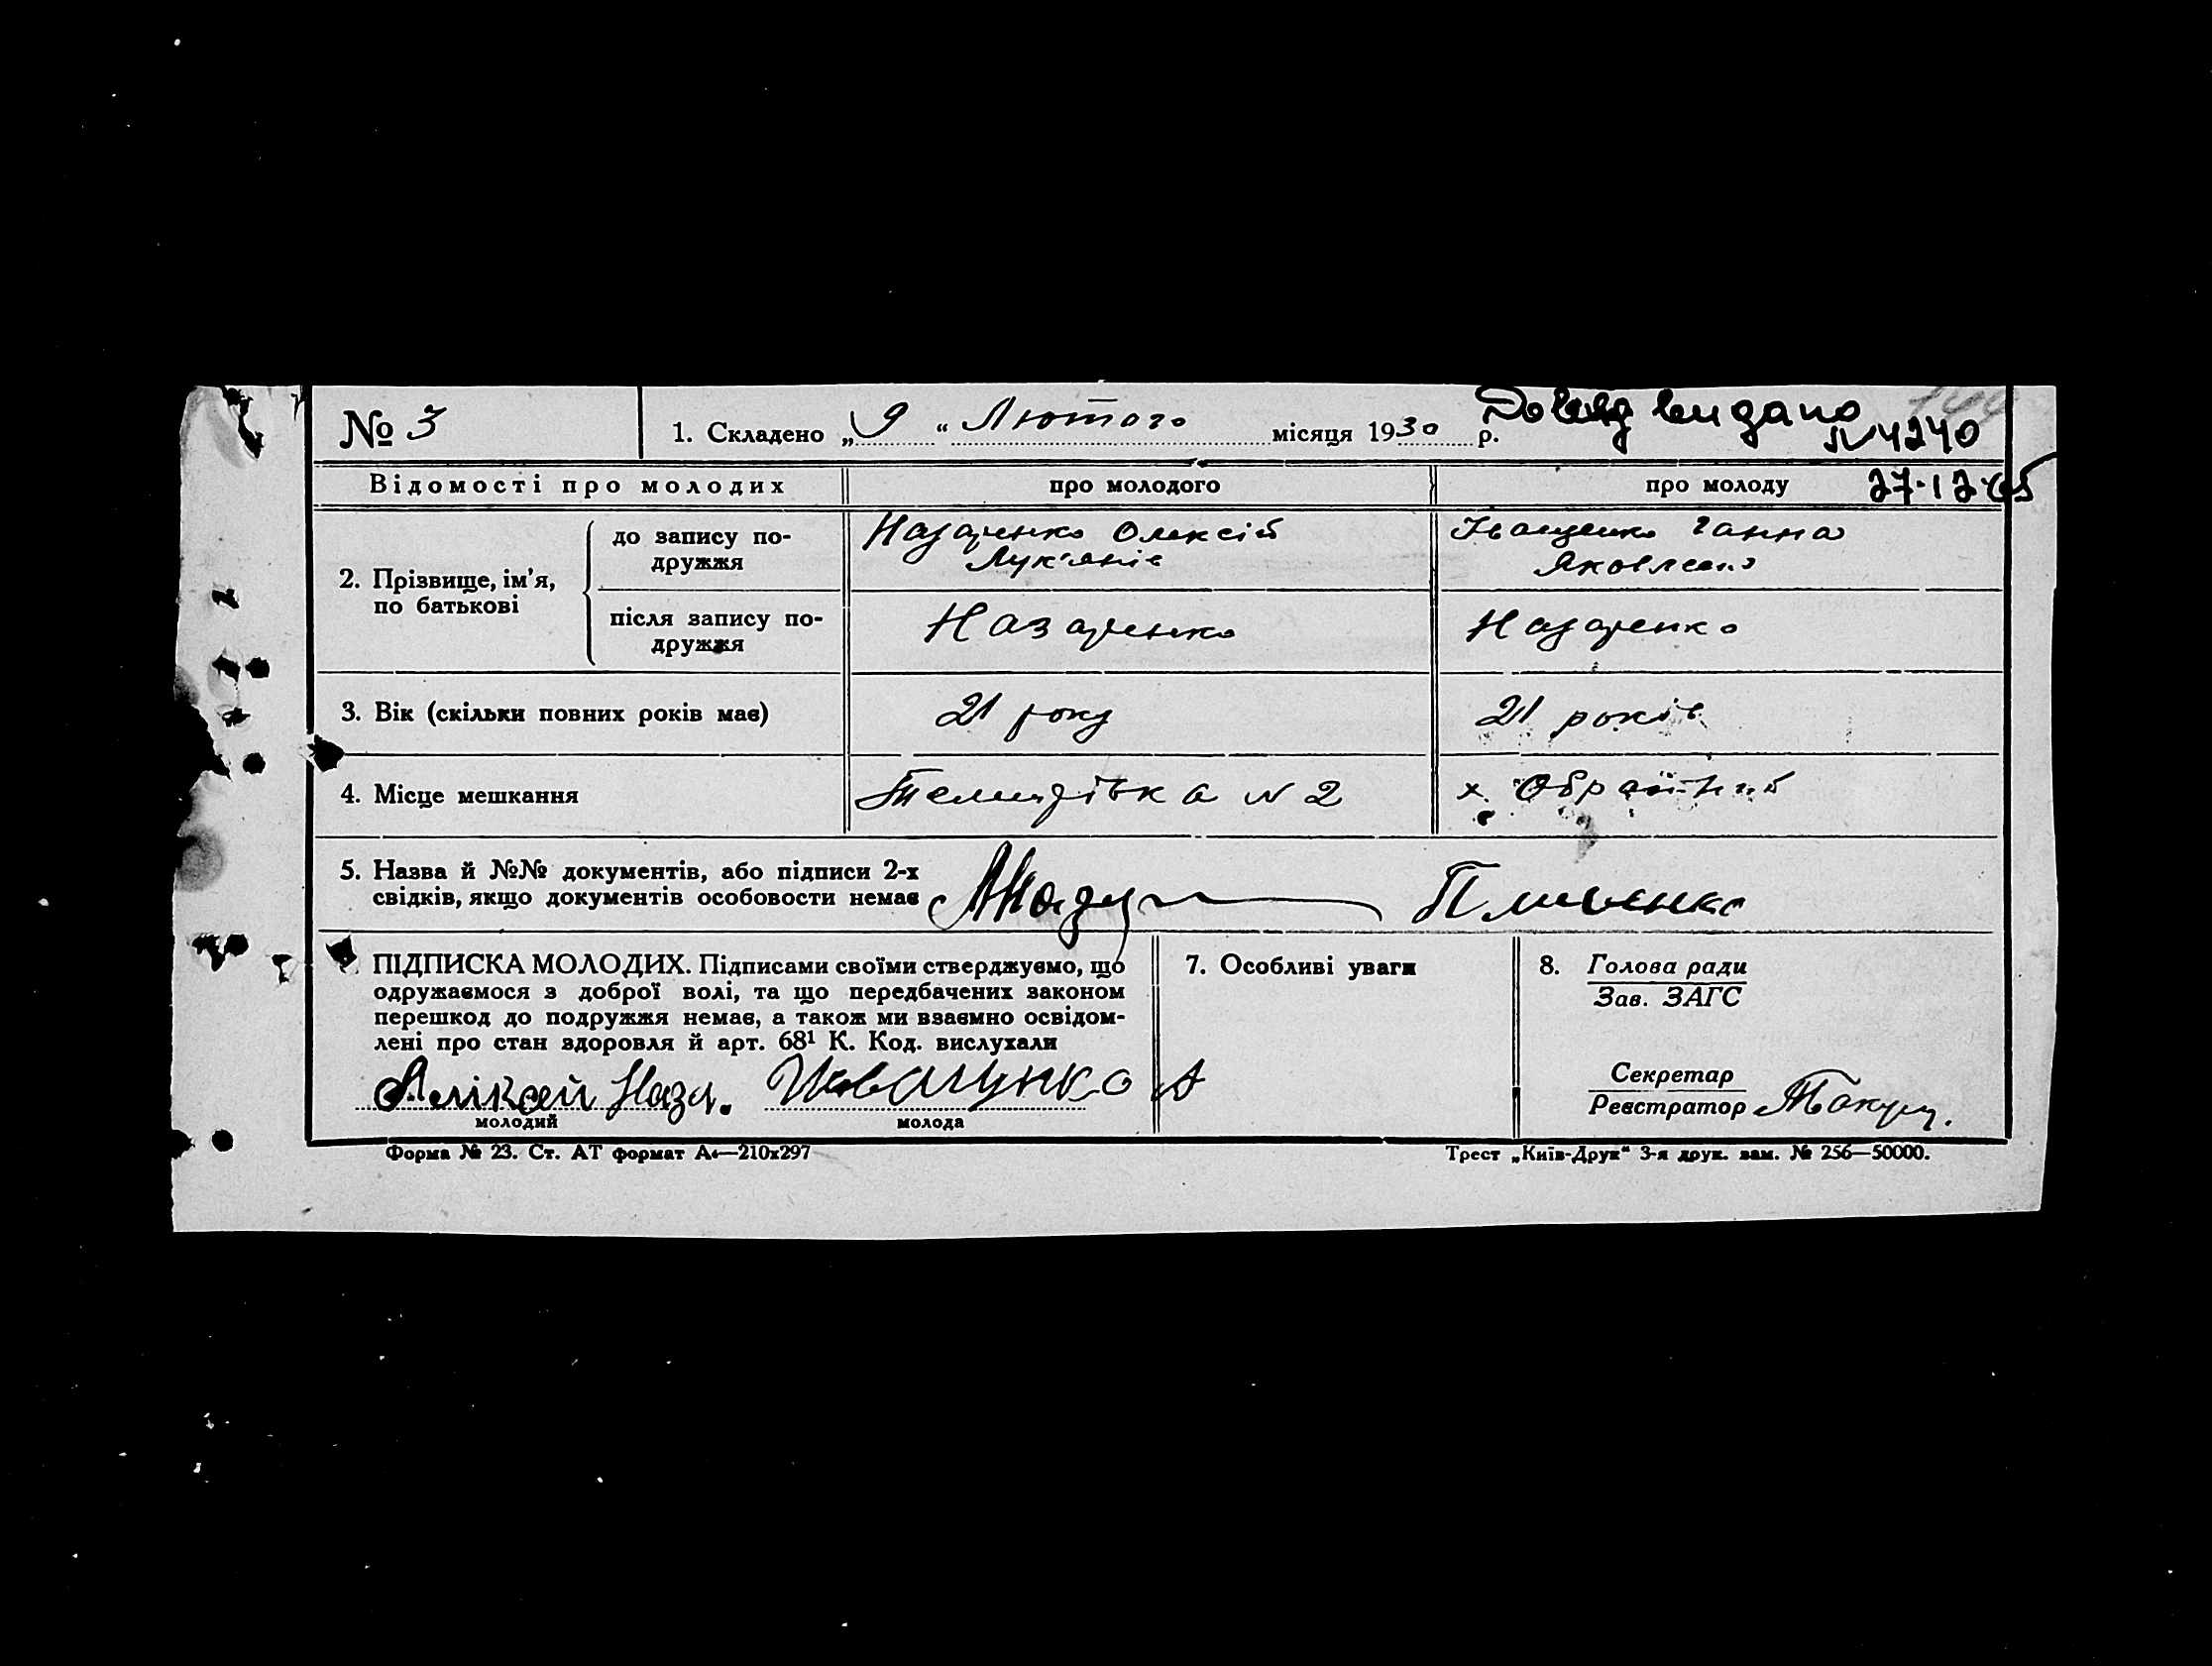 № 3
1. Складено „ 9 “ Лютого місяця 1930 р.
№ 4240
27·12·65
Відомості про молодих
про молодого
про молоду
2. Прізвище, ім’я,
по батькові
до запису по-
дружжя
Назаренко Олексій
Лук'янів
Іващенко Ганна
Яковлевна
після запису по-
дружжя
Назаренко
Назаренко
3. Вік (скільки повних років має)
21 року
21 років
4. Місце мешкання
№ 2
х.
5. Назва й №№ документів, або підписи 2-х
свідків, якщо документів особовости немає
ПІДПИСКА МОЛОДИХ. Підписами своїми стверджуємо, що
одружаємося з доброї волі, та що передбачених законом
перешкод до подружжя немає, а також ми взаємно освідом-
лені про стан здоровля й арт. 68¹ К. Код. вислухали
Назар.
молодий
молода
7. Особливі уваги
8. Голова ради
Зав. ЗАГС
Секретар
Реєстратор
Форма № 23. Ст. АТ формат А4—210х297
Трест „Київ-Друк“ 3-я друк. зам. № 256—50000.